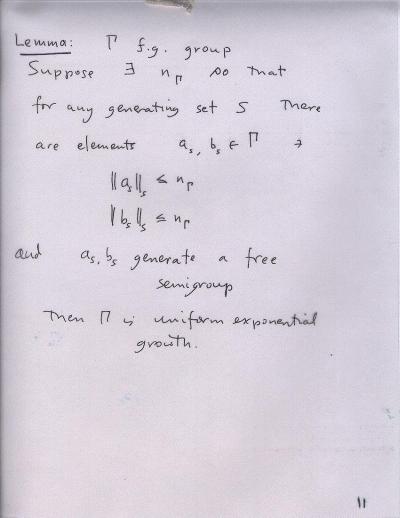 Lemma: Γ f.g. group
Suppose ∃ n_Γ so that
for any generating set S there
are elements a_s, b_s ∈ Γ ∋
‖a_s‖_s ≤ n_Γ
‖b_s‖_s ≤ n_Γ
and a_s, b_s generate a free
semigroup
Then Γ is uniform exponential
growth.
11